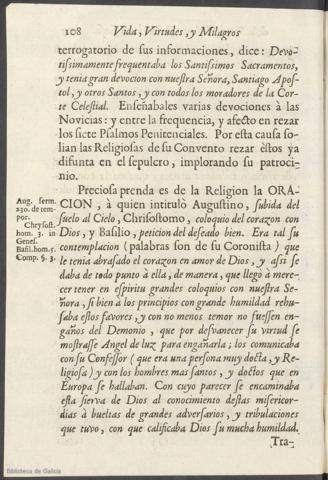 108 Vida, Virtudes, y Milagros
terrogatorio de sus informaciones, dice: Devo-
tissimamente frequentaba los Santissimos Sacramentos,
y tenia gran devocion con nuestra Señora, Santiago Apos-
tol, y otros Santos, y con todos los moradores de la Cor-
te Celestial. Enseñabales varias devociones à las
Novicias: y entre la frequencia, y afecto en rezar
los siete Psalmos Penitenciales. Por esta causa so-
lian las Religiosas de su Convento rezar estos ya
difunta en el sepulcro, implorando su patroci-
nio.
Preciosa prenda es de la Religion la ORA-
CION, à quien intituló Augustino, subida del
suelo al Cielo, Chrisostomo, coloquio del corazon con
Dios, y Basilio, peticion del deseado bien. Era tal su
contemplacion (palabras son de su Coronista) que
le tenia abrasado el corazon en amor de Dios, y assi se
daba de todo punto à ella, de manera, que llegò à mere-
cer tener en espiritu grandes coloquios con nuestra Se-
ñora, si bien à los principios con grande humildad rehu-
saba estos favores, y con no menos temor no fuessen en-
gaños del Demonio, que por desvanecer su virtud se
mostrasse Angel de luz para engañarla; los comunicaba
con su Confessor (que era una persona muy docta, y Re-
ligiosa) y con los hombres mas santos, y doctos que en
Europa se hallaban. Con cuyo parecer se encaminaba
esta sierva de Dios al conocimiento destas misericor-
dias à bueltas de grandes adversarios, y tribulaciones
que tuvo, con que calificaba Dios su mucha humildad.
Tra-
Aug. serm.
230. de tem-
por.
Chrysost.
hom. 3. in
Genes.
Basil. hom. 5.
Comp. §. 3.
Biblioteca de Galicia